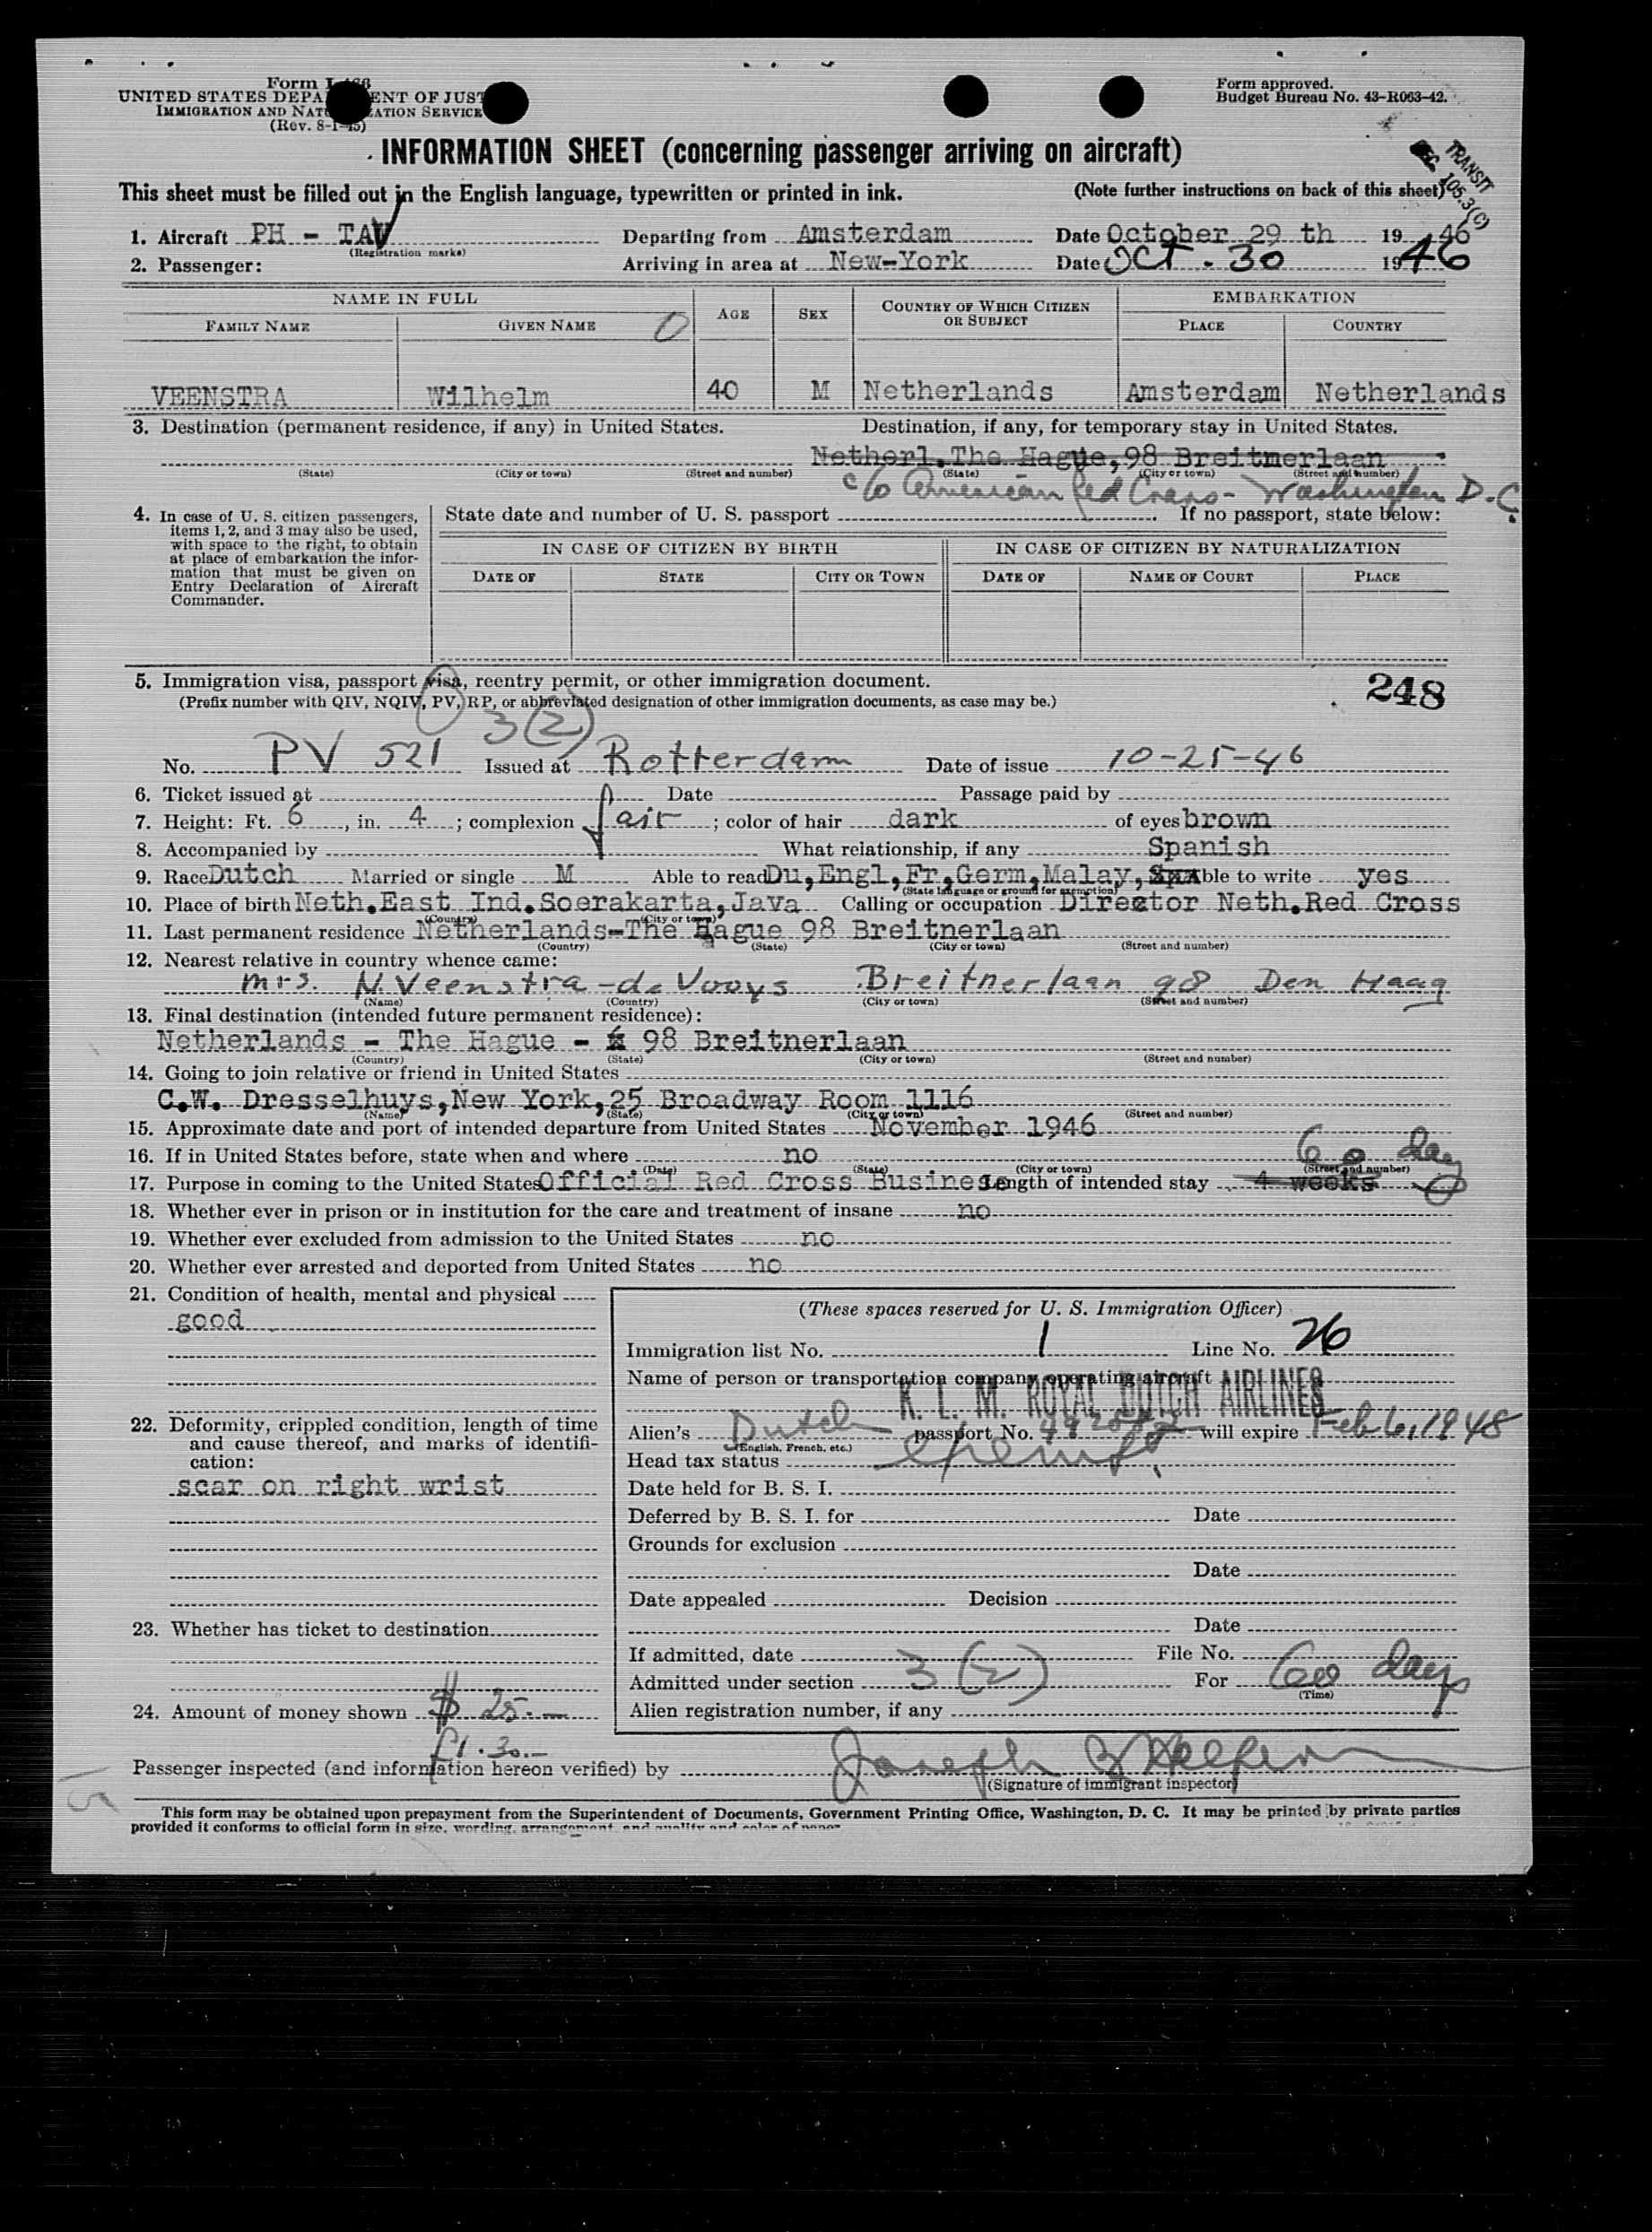 Form I-466
UNITED STATES DEPARTMENT OF JUSTICE
IMMIGRATION AND NATURALIZATION SERVICE
(Rev. 8-1-45)
Form approved.
Budget Bureau No. 43-R063-42.
INFORMATION SHEET (concerning passenger arriving on aircraft)
TRANSIT
SEC 105.3(C)
This sheet must be filled out in the English language, typewritten or printed in ink. (Note further instructions on back of this sheet)
1. Aircraft PH - TAV Departing from Amsterdam Date October 29 th 1946
(Registration marks)
2. Passenger: Arriving in area at New-York Date Oct. 30 1946
NAME IN FULL AGE SEX COUNTRY OF WHICH CITIZEN OR SUBJECT EMBARKATION
FAMILY NAME GIVEN NAME PLACE COUNTRY
VEENSTRA Wilhelm 40 M Netherlands Amsterdam Netherlands
3. Destination (permanent residence, if any) in United States. Destination, if any, for temporary stay in United States.
Netherl.The Hague,98 Breitnerlaan
(State) (City or town) (Street and number) (State) (City or town) (Street and number)
c/o American Red Cross - Washington D.C.
4. In case of U. S. citizen passengers, items 1, 2, and 3 may also be used, with space to the right, to obtain at place of embarkation the information that must be given on Entry Declaration of Aircraft Commander.
State date and number of U. S. passport If no passport, state below:
IN CASE OF CITIZEN BY BIRTH IN CASE OF CITIZEN BY NATURALIZATION
DATE OF STATE CITY OR TOWN DATE OF NAME OF COURT PLACE
5. Immigration visa, passport visa, reentry permit, or other immigration document. 248
(Prefix number with QIV, NQIV, PV, RP, or abbreviated designation of other immigration documents, as case may be.)
3(2)
No. PV 521 Issued at Rotterdam Date of issue 10-25-46
6. Ticket issued at Date Passage paid by
7. Height: Ft. 6, in. 4; complexion fair; color of hair dark of eyes brown
8. Accompanied by What relationship, if any Spanish
9. Race Dutch Married or single M Able to read Du,Engl,Fr,Germ,Malay, Able to write yes
(State language or ground for exemption)
10. Place of birth Neth.East Ind.Soerakarta,Java Calling or occupation Director Neth.Red Cross
(Country) (City or town)
11. Last permanent residence Netherlands-The Hague 98 Breitnerlaan
(Country) (State) (City or town) (Street and number)
12. Nearest relative in country whence came:
mrs. N. Veenstra - de Vooys Breitnerlaan 98 Den Haag
(Name) (Country) (City or town) (Street and number)
13. Final destination (intended future permanent residence):
Netherlands - The Hague - 98 Breitnerlaan
(Country) (State) (City or town) (Street and number)
14. Going to join relative or friend in United States
C.W. Dresselhuys,New York,25 Broadway Room 1116
(Name) (State) (City or town) (Street and number)
15. Approximate date and port of intended departure from United States November 1946
16. If in United States before, state when and where no
(Date) (State) (City or town) (Street and number)
60 days
17. Purpose in coming to the United States Official Red Cross Business Length of intended stay 4 weeks
18. Whether ever in prison or in institution for the care and treatment of insane no
19. Whether ever excluded from admission to the United States no
20. Whether ever arrested and deported from United States no
21. Condition of health, mental and physical
good
22. Deformity, crippled condition, length of time and cause thereof, and marks of identification:
scar on right wrist
23. Whether has ticket to destination
24. Amount of money shown $ 25.-
fl. 30.-
(These spaces reserved for U. S. Immigration Officer)
Immigration list No. 1 Line No. 26
Name of person or transportation company operating aircraft
K. L. M. ROYAL DUTCH AIRLINES
Alien's Dutch passport No. will expire Feb 6, 1948
(English, French, etc.)
Head tax status exempt
Date held for B. S. I.
Deferred by B. S. I. for Date
Grounds for exclusion
Date
Date appealed Decision
Date
If admitted, date File No.
Admitted under section 3 (2) For 60 days
(Time)
Alien registration number, if any
Passenger inspected (and information hereon verified) by Joseph
(Signature of immigrant inspector)
This form may be obtained upon prepayment from the Superintendent of Documents, Government Printing Office, Washington, D. C. It may be printed by private parties
provided it conforms to official form in size, wording, arrangement, and quality and color of paper